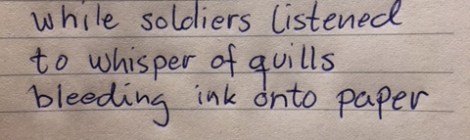 while soldiers listened
to whisper of quills
bleeding ink onto paper